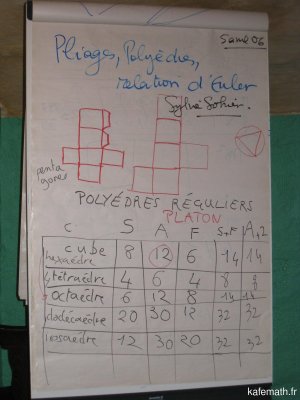 Samedi 06
Pliages, Polyèdres,
relation d'Euler
Sylvie Sohier.
penta
gones
POLYÉDRES RÉGULIERS
PLATON
C S A F S+F A+2
cube
hexaédre 8 12 6 14 14
tétraédre 4 6 4 8 8
octaédre 6 12 8 14 14
dodécaédre 20 30 12 32 32
icosaédre 12 30 20 32 32
kafemath.fr